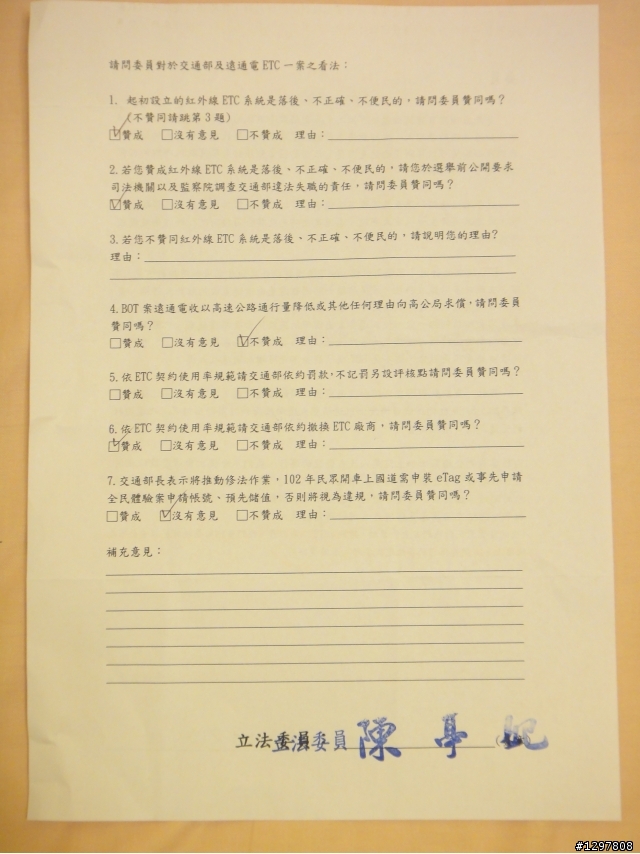 請問委員對於交通部及遠通電ETC一案之看法：
1. 起初設立的紅外線ETC系統是落後、不正確、不便民的，請問委員贊同嗎？
(不贊同請跳第3題)
☑贊成 □沒有意見 □不贊成 理由：
2.若您贊成紅外線ETC系統是落後、不正確、不便民的，請您於選舉前公開要求
司法機關以及監察院調查交通部違法失職的責任，請問委員贊同嗎？
☑贊成 □沒有意見 □不贊成 理由：
3.若您不贊同紅外線ETC系統是落後、不正確、不便民的，請說明您的理由?
理由：
4.BOT案遠通電收以高速公路通行量降低或其他任何理由向高公局求償，請問委員
贊同嗎？
□贊成 □沒有意見 ☑不贊成 理由：
5.依ETC契約使用率規範請交通部依約罰款，不記罰另設評核點請問委員贊同嗎？
□贊成 □沒有意見 □不贊成 理由：
6.依ETC契約使用率規範請交通部依約撤換ETC廠商，請問委員贊同嗎？
☑贊成 □沒有意見 □不贊成 理由：
7.交通部長表示將推動修法作業，102年民眾開車上國道需申裝eTag或事先申請
全民體驗案申請帳號、預先儲值，否則將視為違規，請問委員贊同嗎？
□贊成 ☑沒有意見 □不贊成 理由：
補充意見：
立法委員 委員 陳亭妃
#1297808